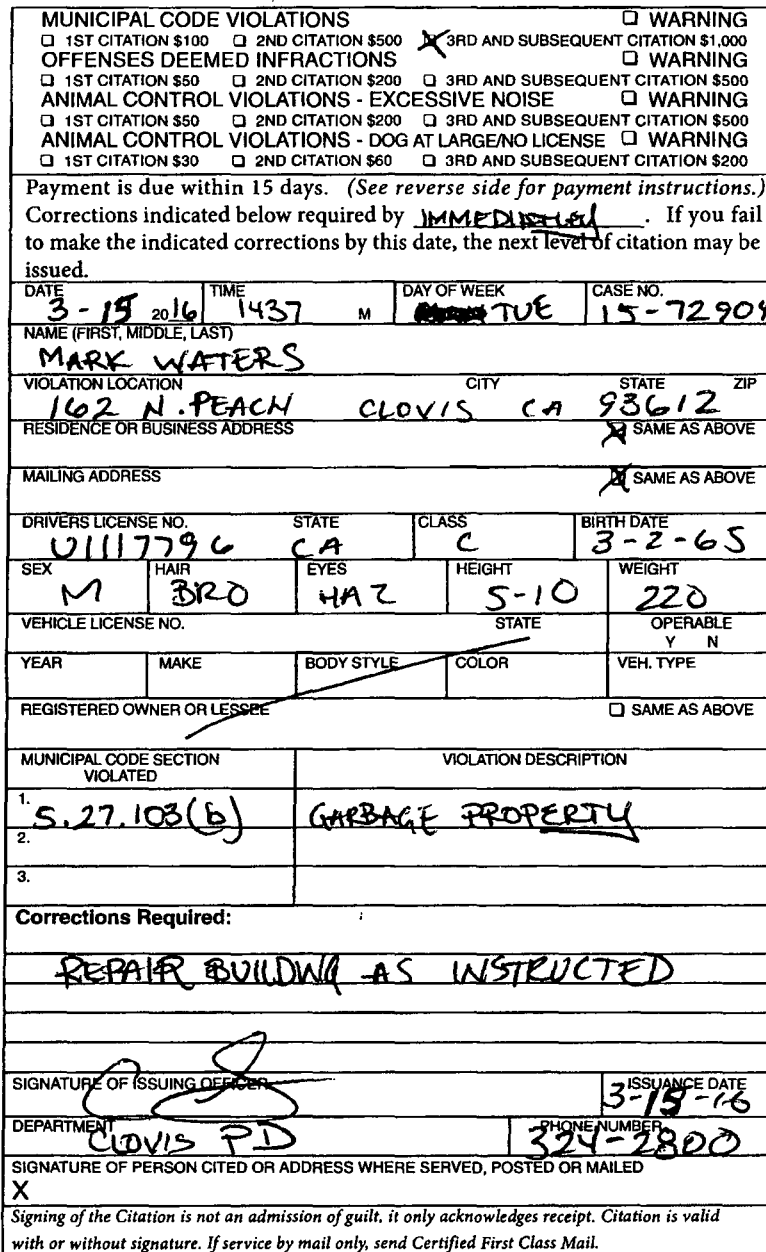 MUNICIPAL CODE VIOLATIONS ☐ WARNING
☐ 1ST CITATION $100 ☐ 2ND CITATION $500 ☒ 3RD AND SUBSEQUENT CITATION $1,000
OFFENSES DEEMED INFRACTIONS ☐ WARNING
☐ 1ST CITATION $50 ☐ 2ND CITATION $200 ☐ 3RD AND SUBSEQUENT CITATION $500
ANIMAL CONTROL VIOLATIONS - EXCESSIVE NOISE ☐ WARNING
☐ 1ST CITATION $50 ☐ 2ND CITATION $200 ☐ 3RD AND SUBSEQUENT CITATION $500
ANIMAL CONTROL VIOLATIONS - DOG AT LARGE/NO LICENSE ☐ WARNING
☐ 1ST CITATION $30 ☐ 2ND CITATION $60 ☐ 3RD AND SUBSEQUENT CITATION $200
Payment is due within 15 days. (See reverse side for payment instructions.)
Corrections indicated below required by . If you fail
to make the indicated corrections by this date, the next level of citation may be
issued.
DATE TIME DAY OF WEEK CASE NO.
3-15 2016 1437 M TUE 15-72909
NAME (FIRST, MIDDLE, LAST)
MARK WATERS
VIOLATION LOCATION CITY STATE ZIP
162 N. PEACH CLOVIS CA 93612
RESIDENCE OR BUSINESS ADDRESS ☒ SAME AS ABOVE
MAILING ADDRESS ☒ SAME AS ABOVE
DRIVERS LICENSE NO. STATE CLASS BIRTH DATE
U1117796 CA C 3-2-65
SEX HAIR EYES HEIGHT WEIGHT
M BRO HAZ 5-10 220
VEHICLE LICENSE NO. STATE OPERABLE
Y N
YEAR MAKE BODY STYLE COLOR VEH. TYPE
REGISTERED OWNER OR LESSEE ☐ SAME AS ABOVE
MUNICIPAL CODE SECTION VIOLATION DESCRIPTION
VIOLATED
1. 5.27.103(b) GARBAGE PROPERTY
2.
3.
Corrections Required:
REPAIR BUILDING AS INSTRUCTED
SIGNATURE OF ISSUING OFFICER ISSUANCE DATE
3-15-16
DEPARTMENT PHONE NUMBER
CLOVIS PD 324-2800
SIGNATURE OF PERSON CITED OR ADDRESS WHERE SERVED, POSTED OR MAILED
X
Signing of the Citation is not an admission of guilt, it only acknowledges receipt. Citation is valid
with or without signature. If service by mail only, send Certified First Class Mail.